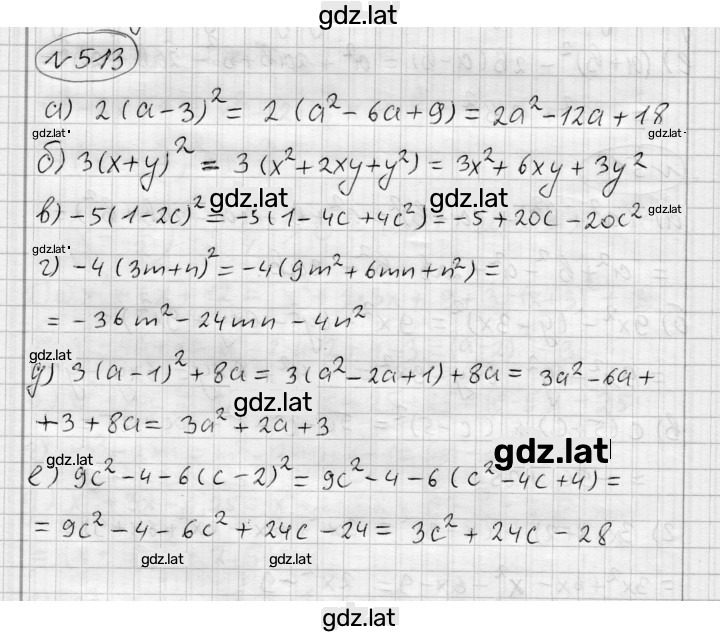 gdz.lat
№513
а) 2(a-3)² = 2(a²-6a+9) = 2a²-12a+18
gdz.lat gdz.lat
б) 3(x+y)² = 3(x²+2xy+y²) = 3x²+6xy+3y²
gdz.lat gdz.lat gdz.lat
в) -5(1-2c)² = -5(1-4c+4c²) = -5+20c-20c²
gdz.lat
г) -4(3m+n)² = -4(9m²+6mn+n²) =
= -36m²-24mn-4n²
gdz.lat
д) 3(a-1)²+8a = 3(a²-2a+1)+8a = 3a²-6a+
gdz.lat
+3+8a = 3a²+2a+3
gdz.lat gdz.lat
е) 9c²-4-6(c-2)² = 9c²-4-6(c²-4c+4) =
= 9c²-4-6c²+24c-24 = 3c²+24c-28
gdz.lat gdz.lat
gdz.lat